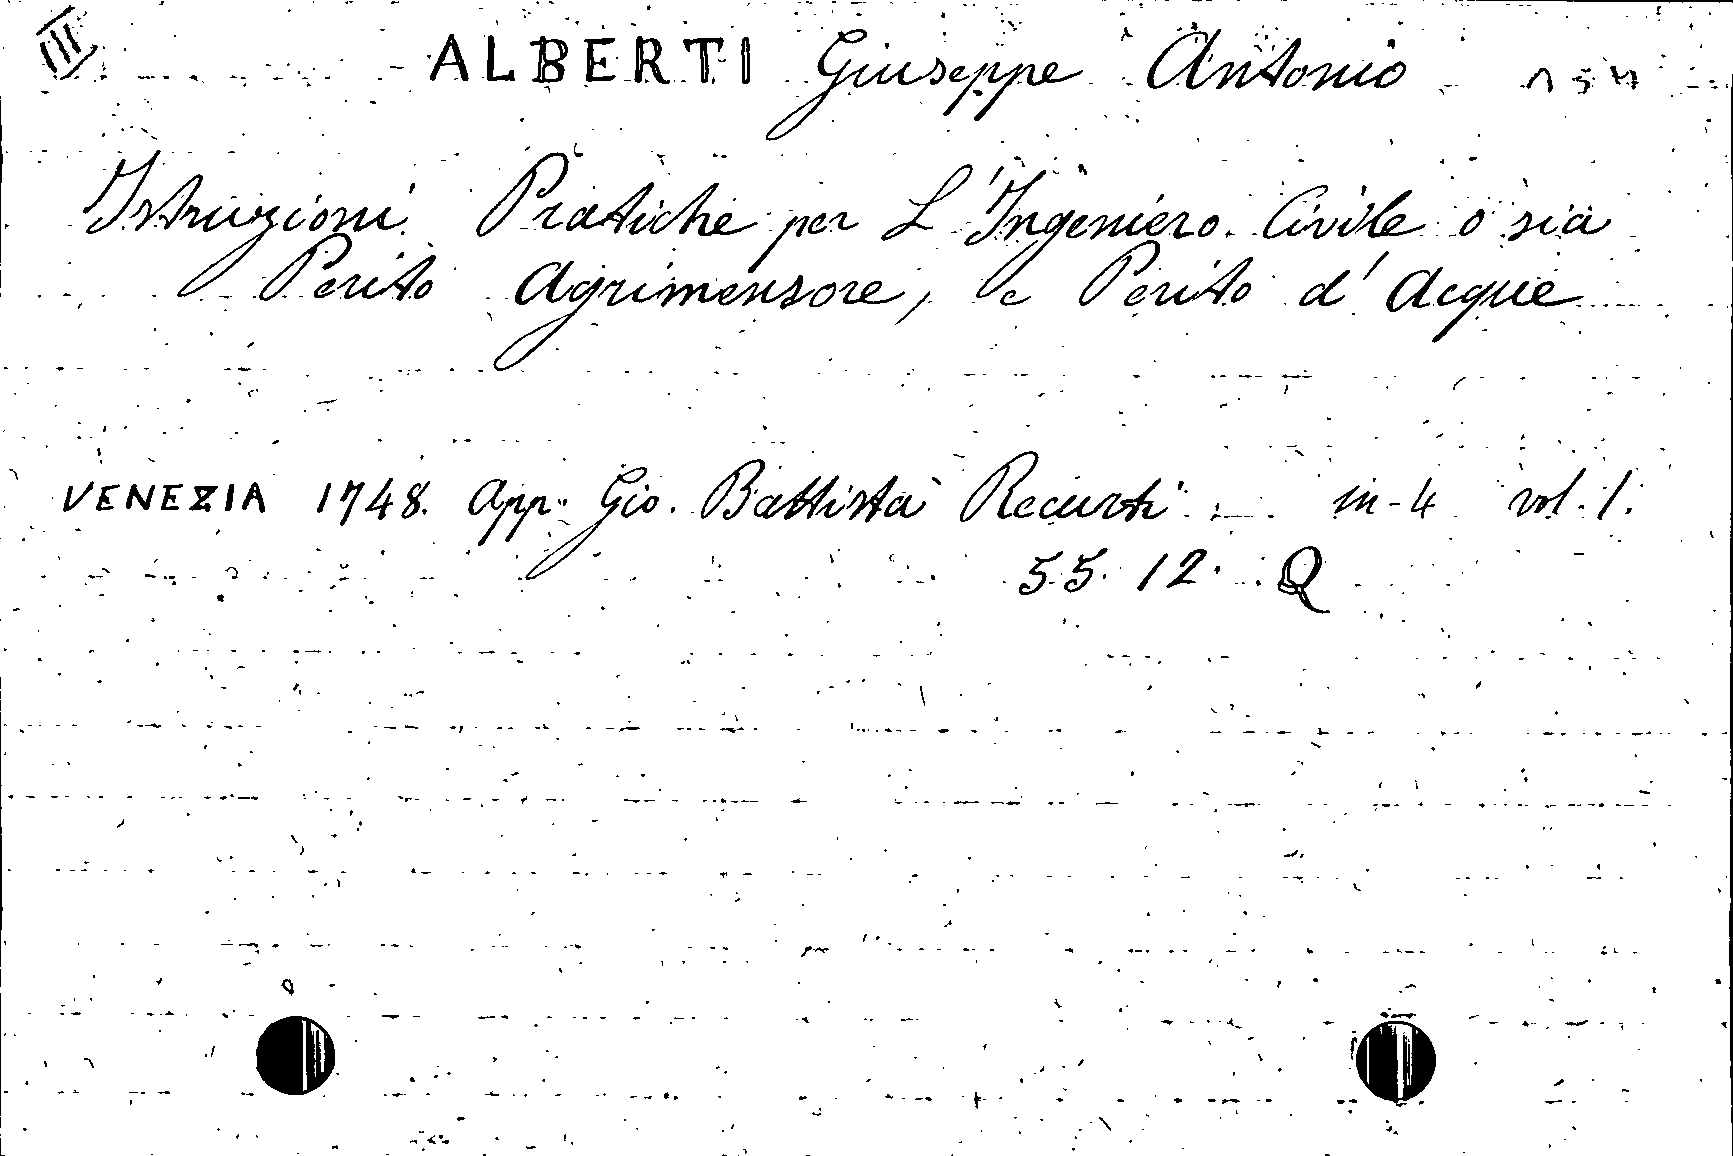 III ALBERTI Giuseppe Antonio
Istruzioni Pratiche per L'Ingeniero Civile o sia
Perito Agrimensore, e Perito d'Acque
VENEZIA 1748. App. Gio. Battista Recurti in-4 vol. 1.
55. 12. Q